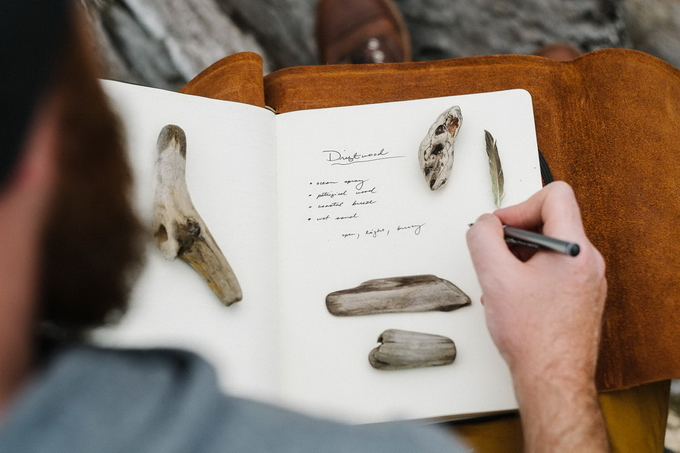 Driftwood
• ocean spray
• petrified wood
• coastal breeze
• wet sand
open, light, breezy